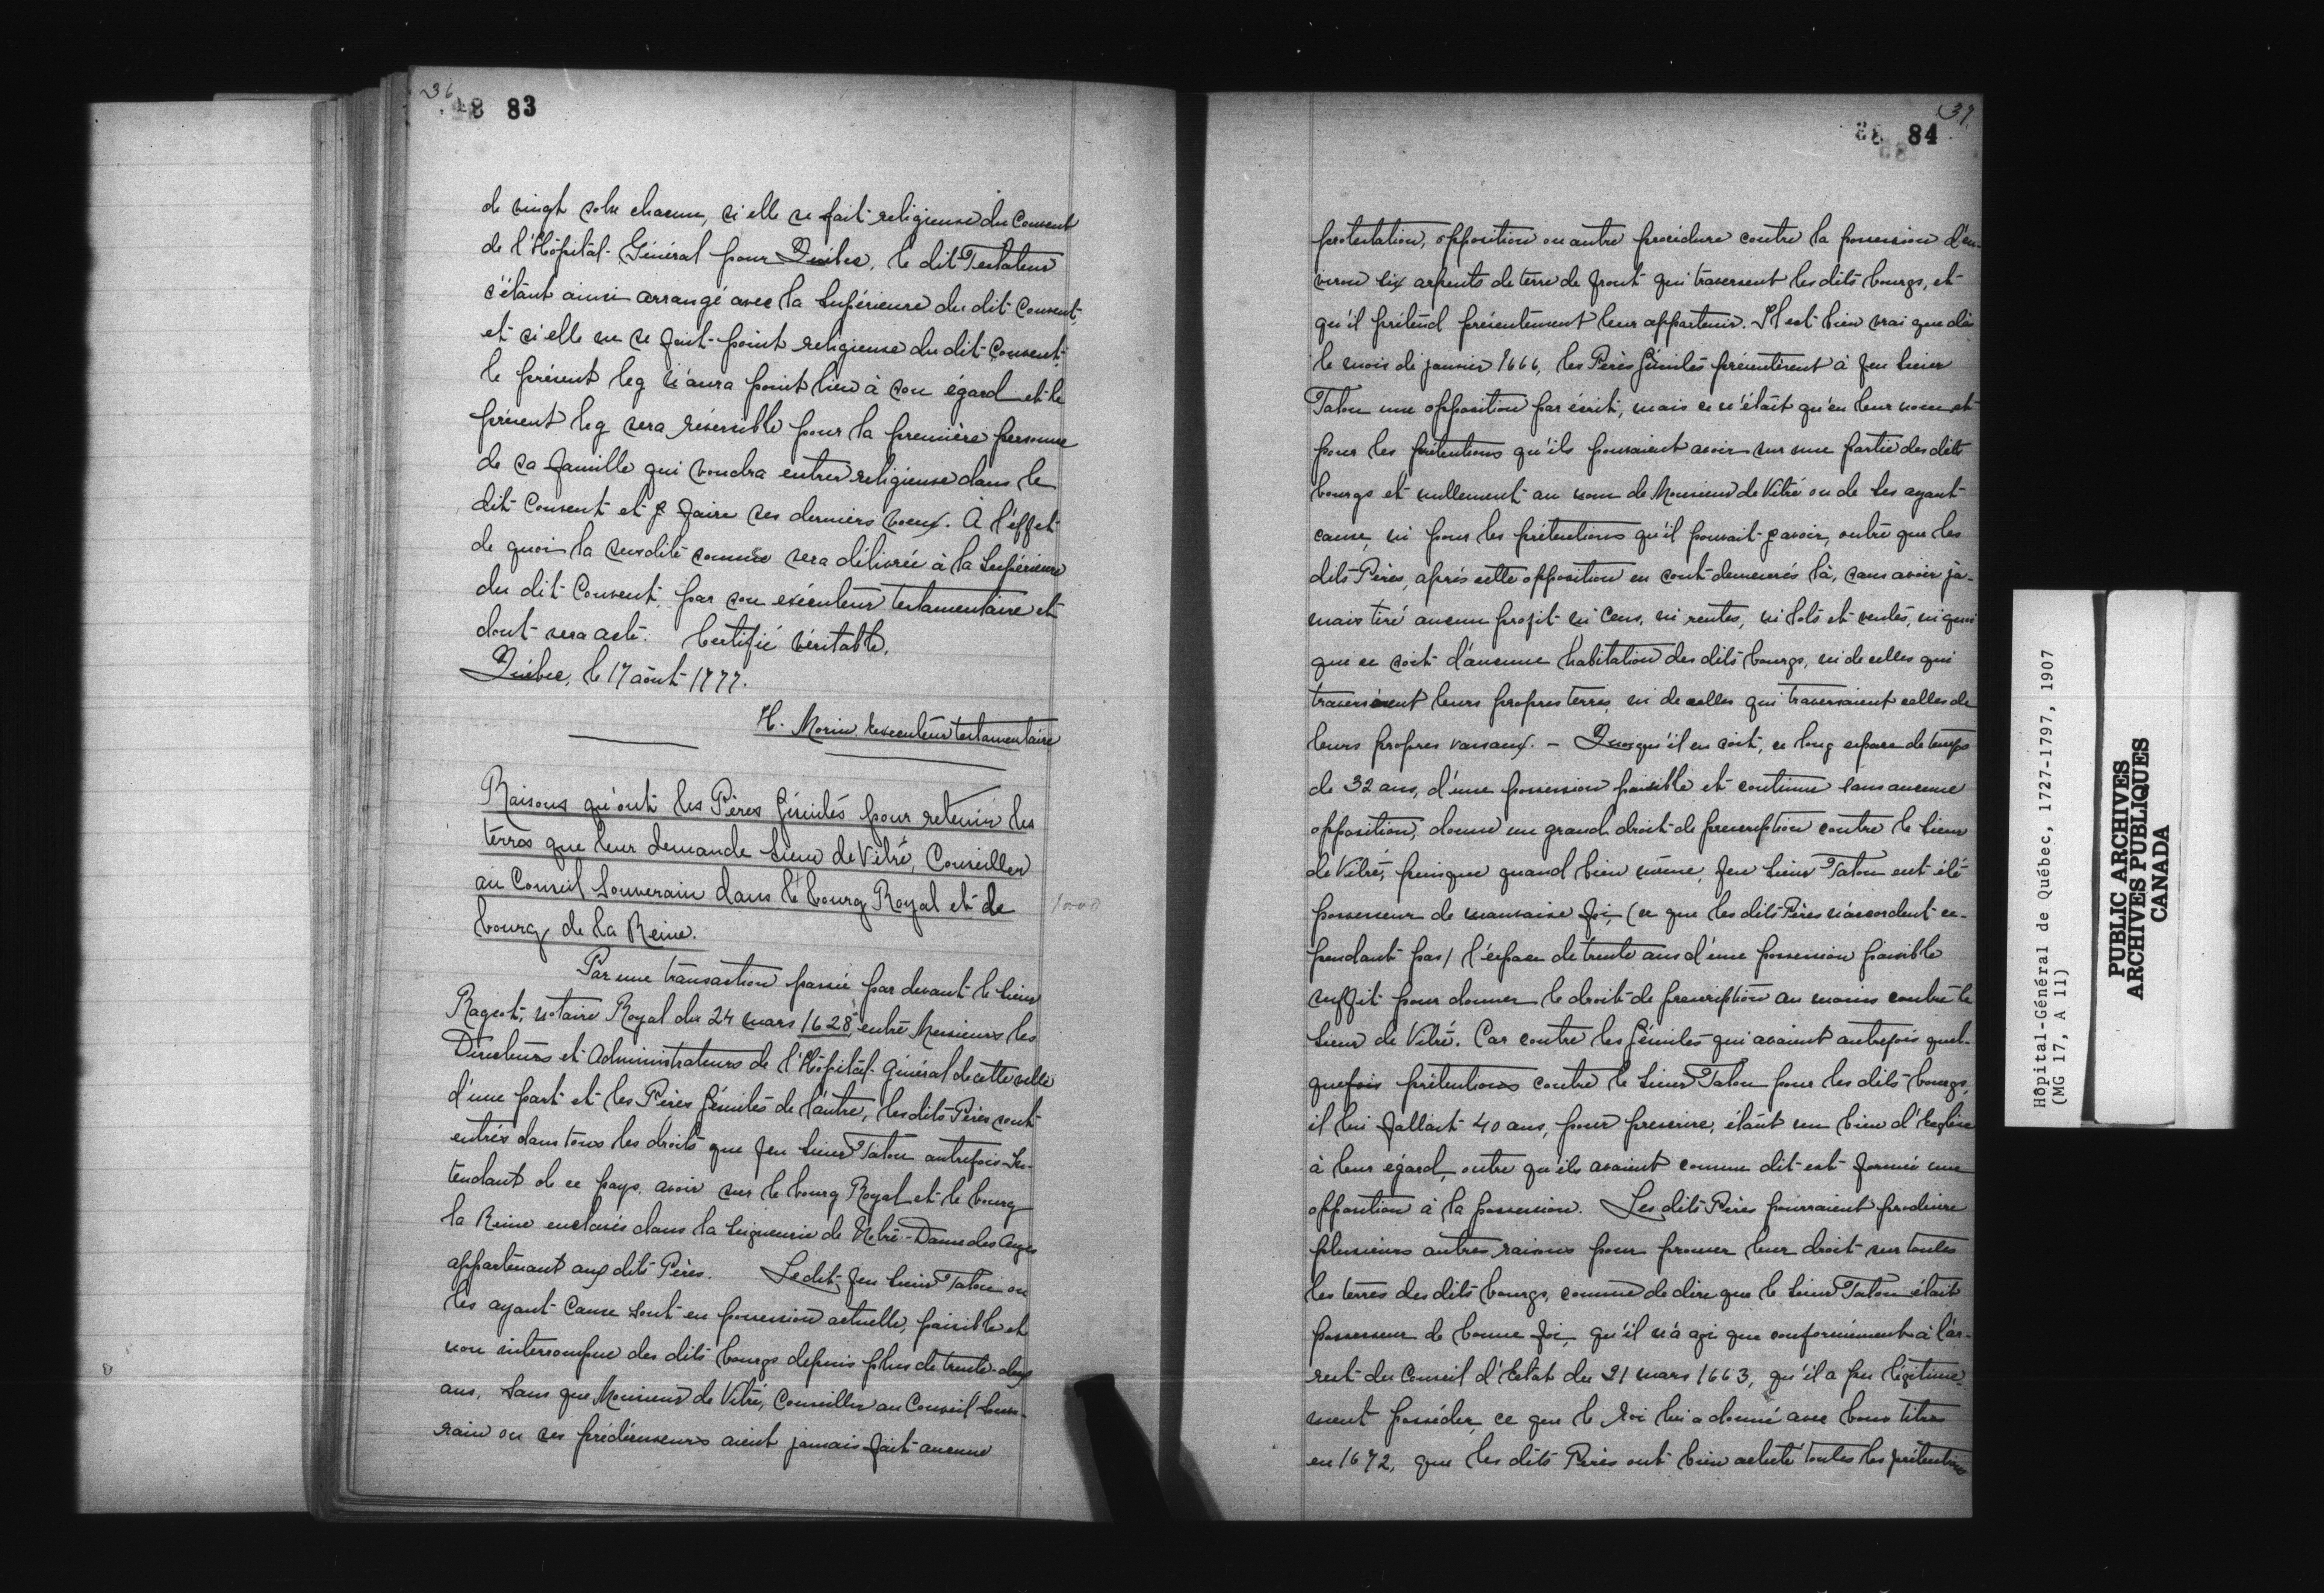 36
83
de vingt sols chacun, si elle se fait religieuse du Couvent
de l'Hôpital-Général pour Québec, le dit Testateur
s'étant ainsi arrangé avec la Supérieure du dit Couvent,
et si elle ne se fait point religieuse du dit Couvent,
le présent leg n'aura point lieu à son égard et le
présent leg sera réversible pour la première personne
de sa famille qui voudra entrer religieuse dans le
dit Couvent et y faire ses derniers voeux. A l'effet
de quoi la susdite somme sera délivrée à la Supérieure
du dit Couvent, par son exécuteur testamentaire et
dont sera acte. Certifié véritable.
Québec, le 17 août 1777.
H. Morin. Executeur testamentaire
Raisons qu'ont les Pères Jésuites pour retenir les
terres que leur demande Sieur de Vitré, Conseiller
au Conseil Souverain dans le bourg Royal et de
bourg de la Reine.
Par une transaction passée par devant le Sieur
Rageot, notaire Royal du 24 mars 1628, entre Messieurs les
Directeurs et Administrateurs de l'Hôpital-Général de cette ville
d'une part et les Pères Jésuites de l'autre, les dits Pères sont
entrés dans tous les droits que feu Sieur Talon autrefois In-
tendant de ce pays, avoir sur le bourg Royal et le bourg
la Reine enclavés dans la Seigneurie de Notre-Dame des Anges
appartenant aux dits Pères. Le dit feu Sieur Talon ou
les ayant Cause sont en possession actuelle, paisible et
non interrompue des dits bourgs depuis plus de trente-deux
ans, sans que Monsieur de Vitré, Conseiller au Conseil Souve-
rain ou ses prédécesseurs aient jamais fait aucune
37
84
protestation, opposition ou autre procédure contre la possession d'en-
viron six arpents de terre de front qui traversent les dits bourgs, et
qu'il prétend présentement leur appartenir. Il est bien vrai que dès
le mois de janvier 1666, les Pères Jésuites présentèrent à feu Sieur
Talon une opposition par écrit, mais ce n'était qu'en leur nom et
pour les prétentions qu'ils pouvaient avoir sur une partie des dits
bourgs et nullement au nom de Monsieur de Vitré ou de ses ayant
cause, ni pour les prétentions qu'il pouvait y avoir, outre que les
dits Pères, après cette opposition en sont demeurés là, sans avoir ja-
mais tiré aucun profit ni Cens, ni rentes, ni lots et ventes, ni quoi
que ce soit d'aucune habitation des dits bourgs, ni de celles qui
traversaient leurs propres terres, ni de celles qui traversaient celles de
leurs propres vassaux. - Quoiqu'il en soit, ce long espace de temps
de 32 ans, d'une possession paisible et continue sans aucune
opposition, donne un grand droit de prescription contre le Sieur
de Vitré, puisque quand bien même, feu Sieur Talon eut été
possesseur de mauvaise foi, (ce que les dits Pères n'accordent ce-
pendant pas) l'espace de trente ans d'une possession paisible
suffit pour donner le droit de prescription au moins contre le
Sieur de Vitré. Car contre les Jésuites qui avaient autrefois quel-
quefois prétentions contre le Sieur Talon pour les dits bourgs,
il lui fallait 40 ans, pour prescrire, étant un bien d'Eglise
à leur égard, outre qu'ils avaient comme dit est formée une
opposition à la possession. Les dits Pères pourraient produire
plusieurs autres raisons pour prouver leur droit sur toutes
les terres des dits bourgs, comme de dire que le Sieur Talon était
possesseur de bonne foi, qu'il n'a agi que conformément à l'ar-
rest du Conseil d'Etat du 21 mars 1663, qu'il a pu légitime-
ment posséder ce que le Roi lui a donné avec bons titres
en 1672, que les dits Pères ont bien acheté toutes les prétentions
1000
Hôpital-Général de Québec, 1727-1797, 1907
(MG 17, A 11)
PUBLIC ARCHIVES
ARCHIVES PUBLIQUES
CANADA